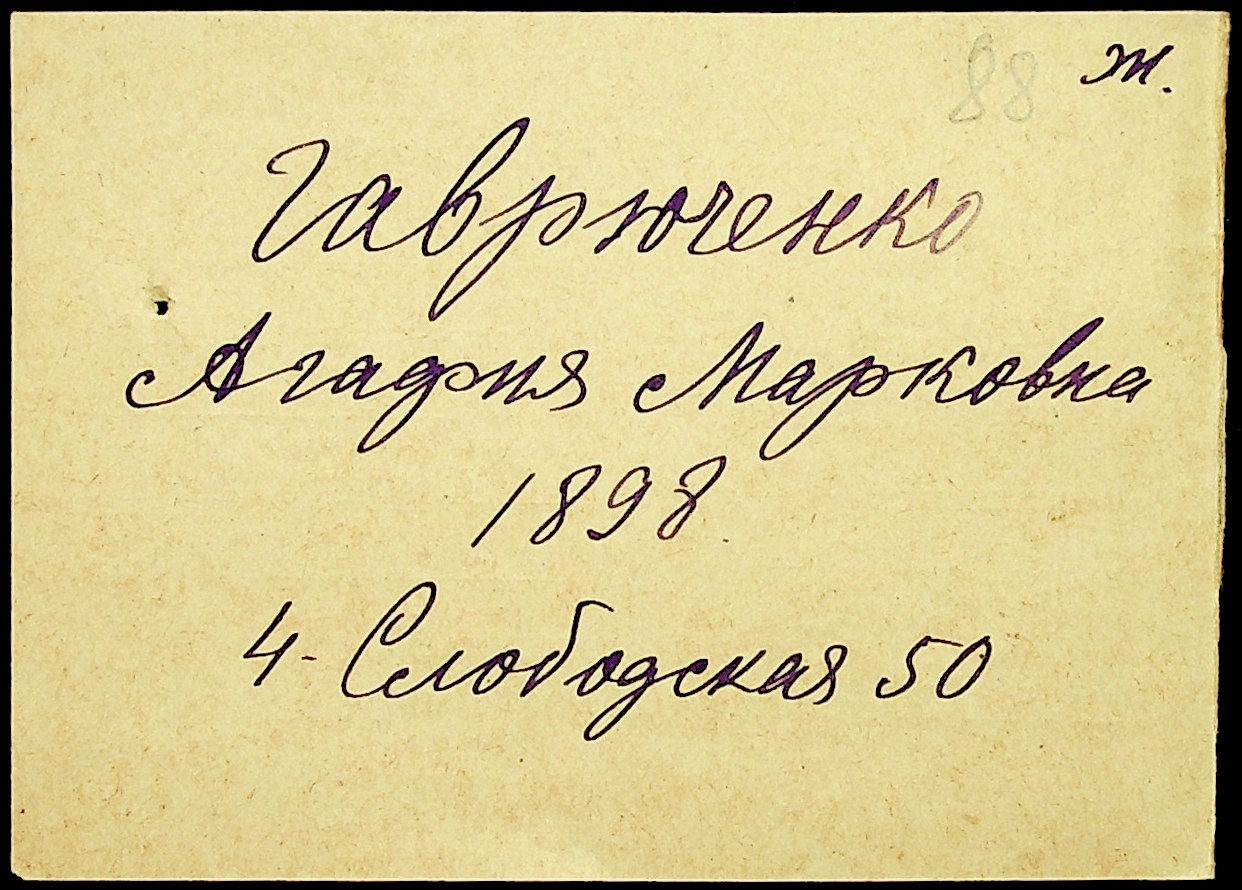 88 ж.
Гаврюченко
Агафия Марковна
1898
4- Слободская 50